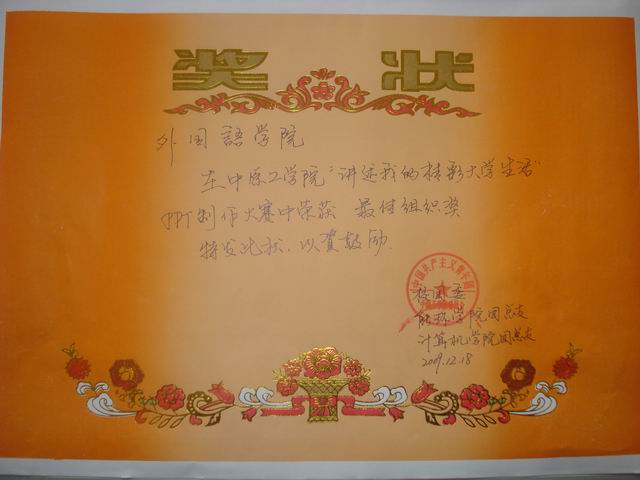 奖 状
外国語学院
在中原工学院“讲述我的精彩大学生活”
PPT制作大赛中荣获 最佳组织奖
特发此状，以资鼓励.
中国共产主义青年团
校团委
学院团总支
计算机学院团总支
2009.12.18